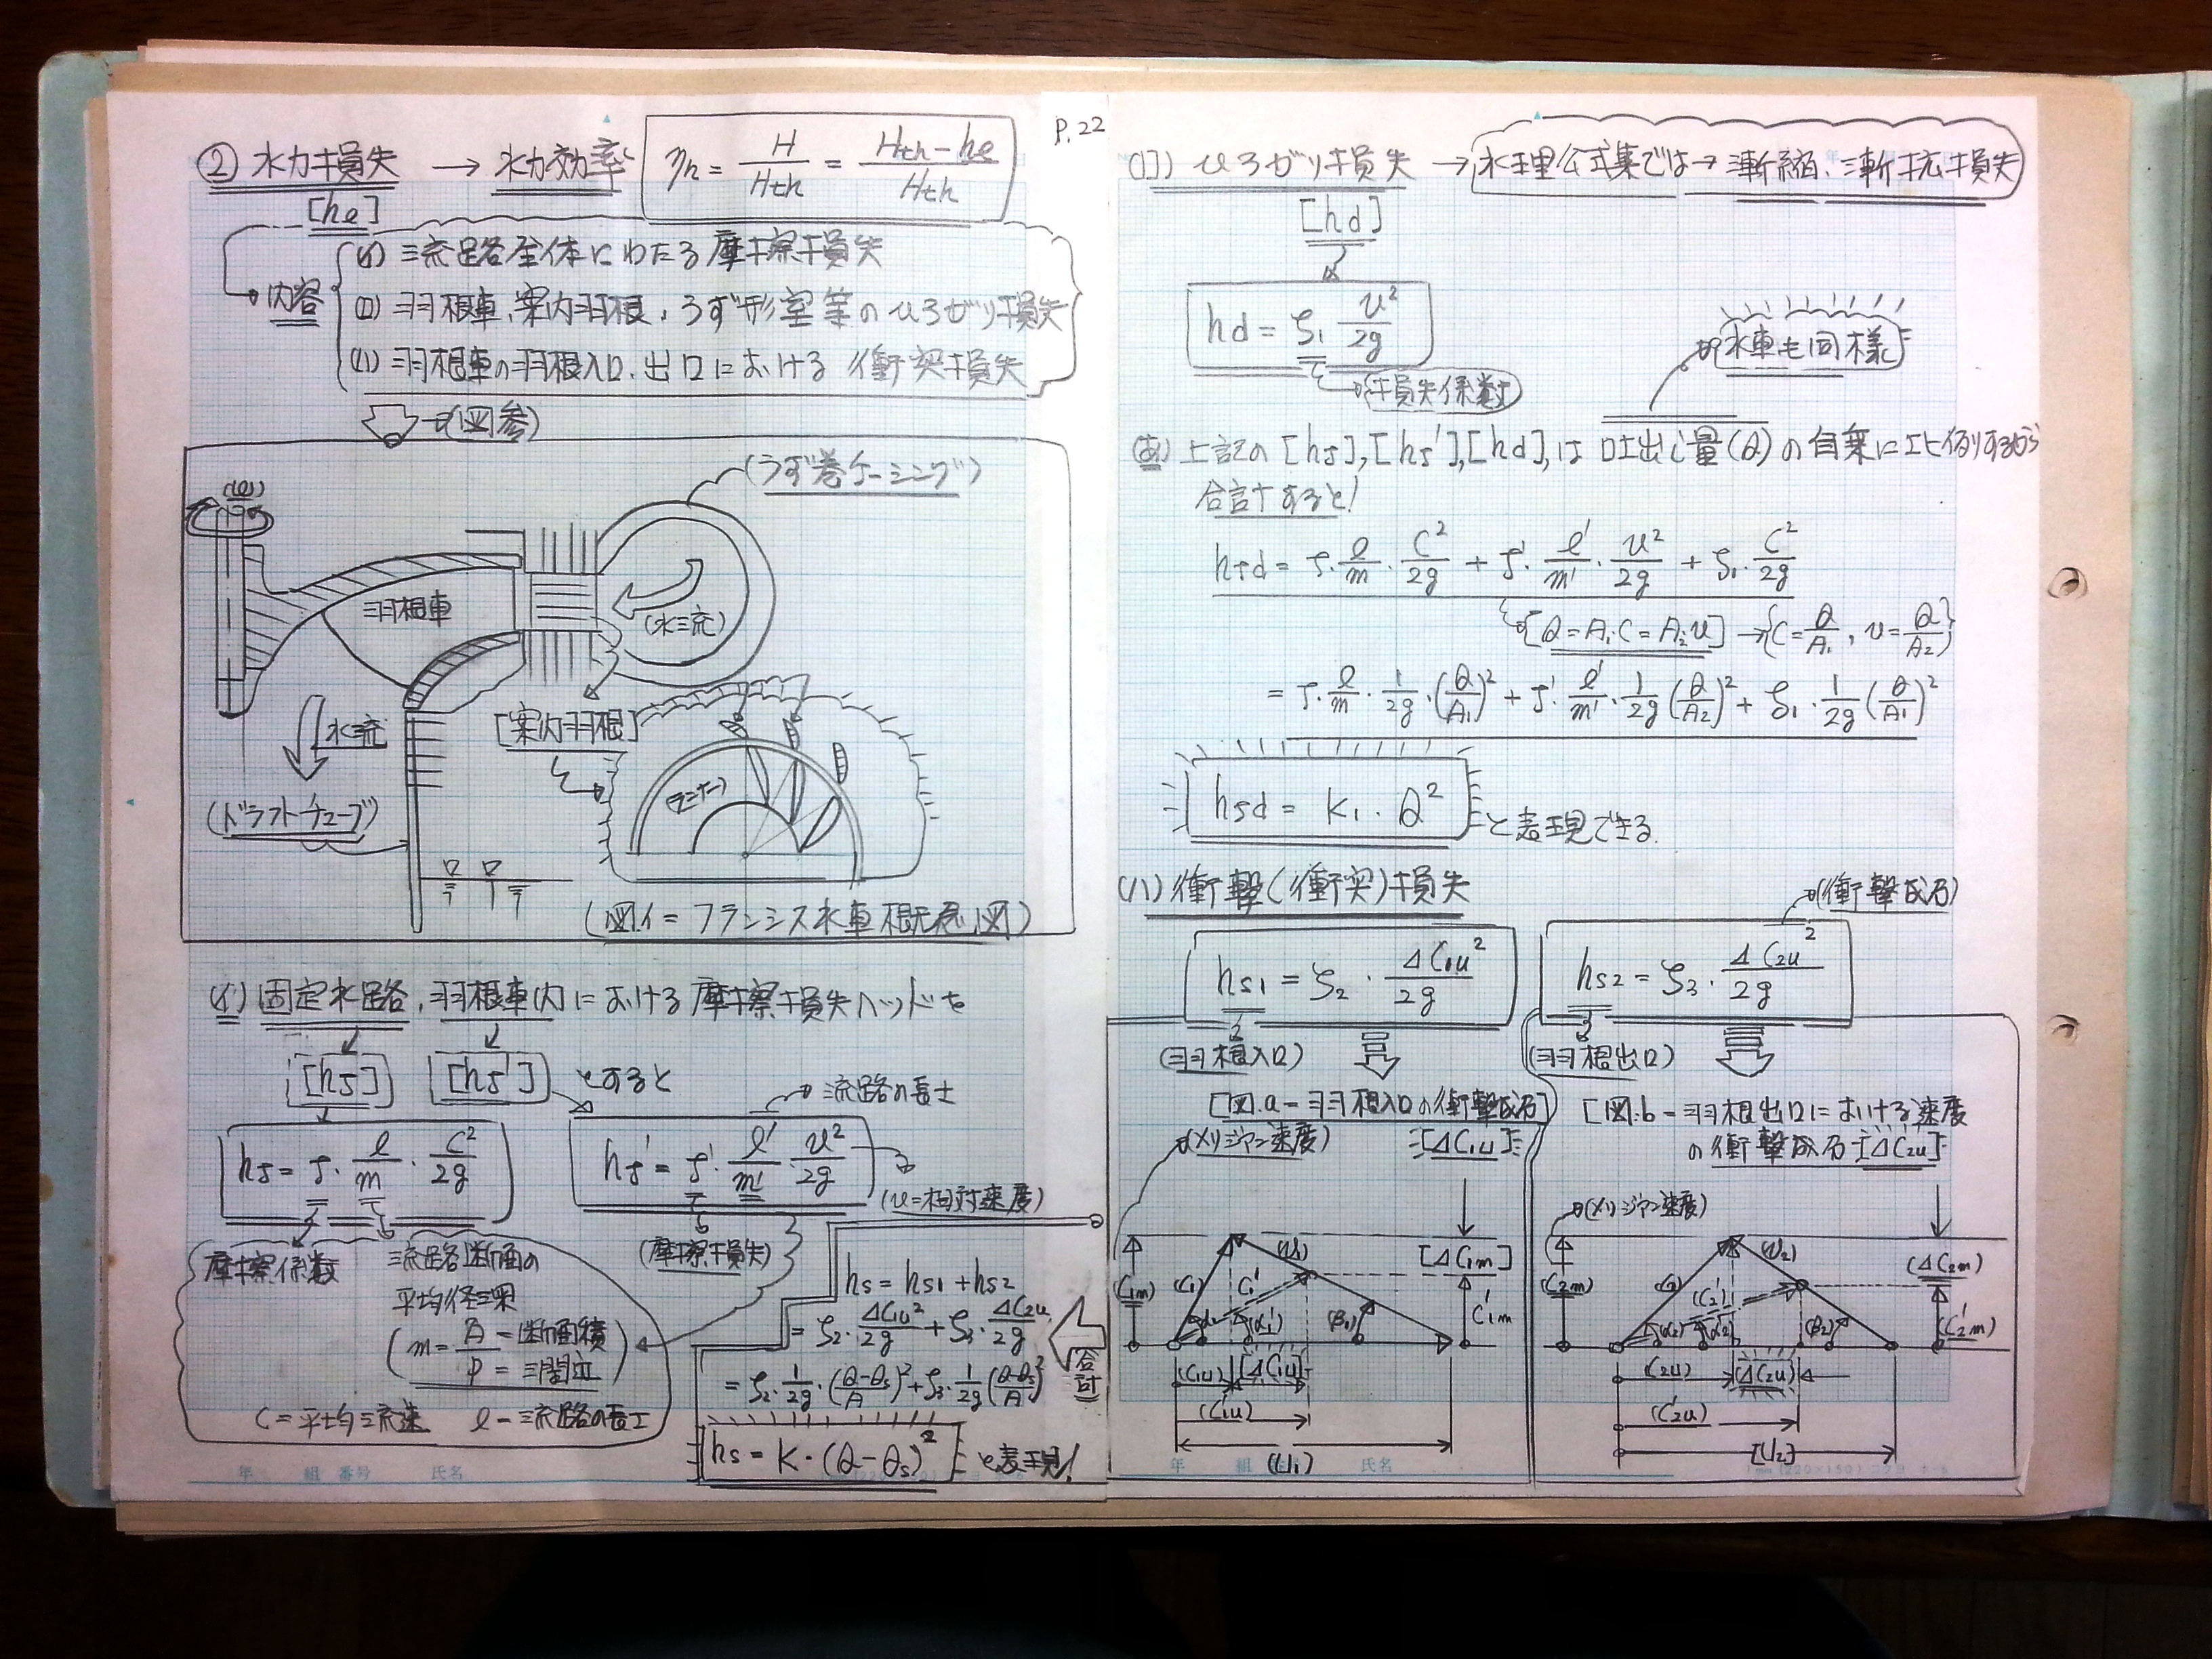 P.22
② 水力損失 → 水力効率 ηh = H/Hth = (Hth-hl)/Hth
[hl]
内容
(イ) 流路全体にわたる摩擦損失
(ロ) 羽根車、案内羽根、うず形室等のひろがり損失
(ハ) 羽根車の羽根入口、出口における衝突損失
(図参)
(うず巻ケーシング)
羽根車
(水流)
水流
[案内羽根]
(ランナー)
(ドラフトチューブ)
(図イ=フランシス水車概念図)
(イ) 固定水路、羽根車内における摩擦損失ヘッドを
[hf] [hf'] とすると
流路の長さ
hf = f・l/m・C²/2g
hf' = f'・l'/m'・u²/2g
(u=相対速度)
摩擦係数
流路断面の
平均径深
(m = A/P = 断面積/潤辺)
(摩擦損失)
C=平均流速 l-流路の長さ
hs = hs1 + hs2
= ζ2・ΔC1u²/2g + ζ3・ΔC2u/2g
= ζ2・1/2g・(Q-Qs/A)² + ζ3・1/2g(Q-Qs/A)²
合計
hs = K・(Q-Qs)² と表現!
(ロ) ひろがり損失 → 水理公式集では→漸縮、漸拡損失
[hd]
hd = ζ1 u²/2g
損失係数
水車も同様
(あ) 上記の[hf],[hf'],[hd],は吐出し量(Q)の自乗に比例するから
合計すると!
hfd = f・l/m・C²/2g + f'・l'/m'・u²/2g + ζ1・C²/2g
[Q=A1・C=A2・u] → {C=Q/A1, u=Q/A2}
= f・l/m・1/2g・(Q/A1)² + f'・l'/m'・1/2g(Q/A2)² + ζ1・1/2g(Q/A1)²
hfd = K1・Q² と表現できる.
(ハ) 衝撃(衝突)損失
(衝撃成分)
hs1 = ζ2・ΔC1u²/2g
hs2 = ζ3・ΔC2u²/2g
(羽根入口)
(羽根出口)
[図.a-羽根入口の衝撃成分]
[ΔC1u]
(メリジアン速度)
[図.b-羽根出口における速度
の衝撃成分[ΔC2u]
(メリジアン速度)
(C1m) C1 C1' (u1) [ΔC1m] C'1m
(α1') (β1)
(C1u) [ΔC1u]
(C'1u)
(U1)
(C2m) C2 (C2') (u2) (ΔC2m) (C'2m)
(α2) (α2') (β2)
(C2u) [ΔC2u]
(C'2u)
[U2]
年 組 番号 氏名
年 組 氏名